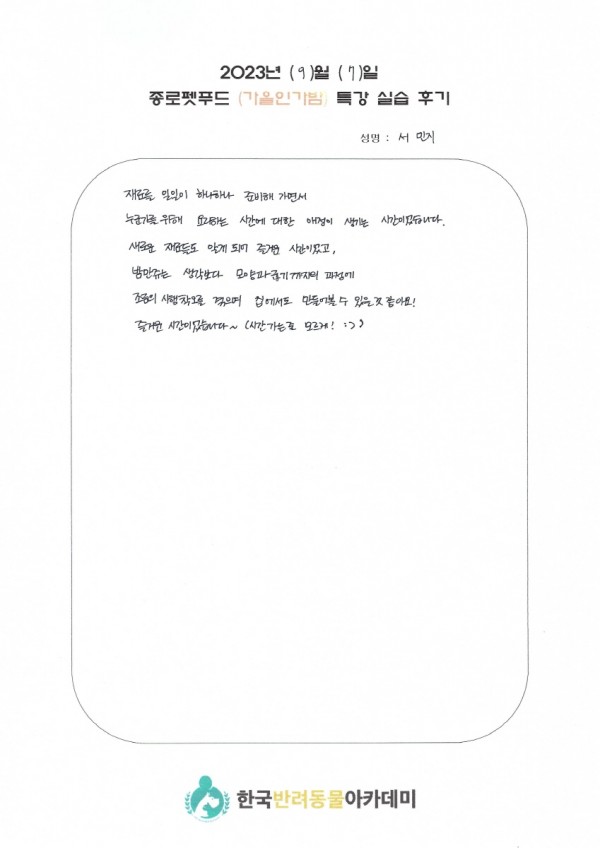 2023년 (9)월 (7)일
종로펫푸드 (가을인가밤) 특강 실습 후기
성명 : 서 민지
재료를 일일이 하나하나 준비해 가면서
누군가를 위해 요리하는 시간에 대한 애정이 생기는 시간이였습니다.
새로운 재료들도 알게 되며 즐거운 시간이었고,
생각보다 모양과 굽기까지의 과정에
조금의 시행착오를 겪으며 집에서도 만들어볼 수 있을것 같아요!
즐거운 시간이었습니다~ (시간가는줄 모르게! :>)
한국반려동물아카데미